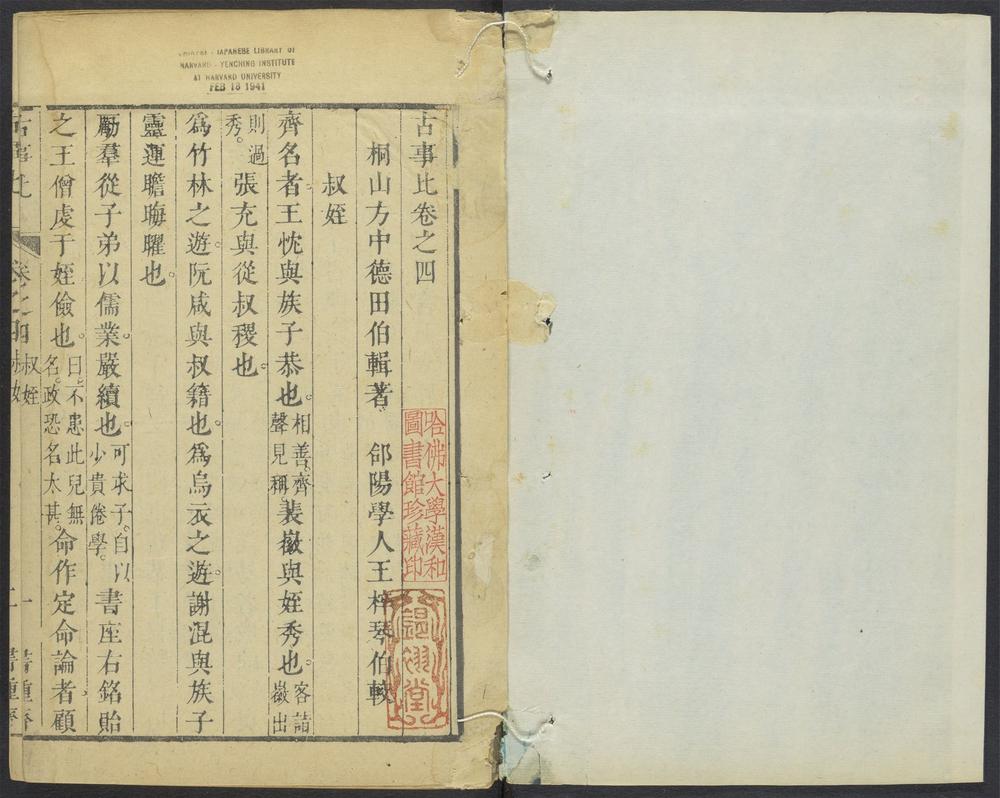 JAPANESE LIBRARY OF
HARVARD - YENCHING INSTITUTE
AT HARVARD UNIVERSITY
FEB 18 1941
古事比卷之四
桐山方中德田伯輯著 郃陽學人王梓琴伯較
哈佛大學漢和
圖書館珍藏印
叔姪
齊名者王忱與族子恭也相善齊
聲見稱裴徽與姪秀也客詣
徽出
則過
秀張充與從叔稷也
爲竹林之遊阮咸與叔籍也爲烏衣之遊謝混與族子
靈運瞻晦曜也
勵羣從子弟以儒業嚴續也可求子自以
少貴倦學書座右銘貽
之王僧虔于姪儉也曰不患此兒無
名政恐名太甚命作定命論者顧
古事比
卷之四
叔姪
一